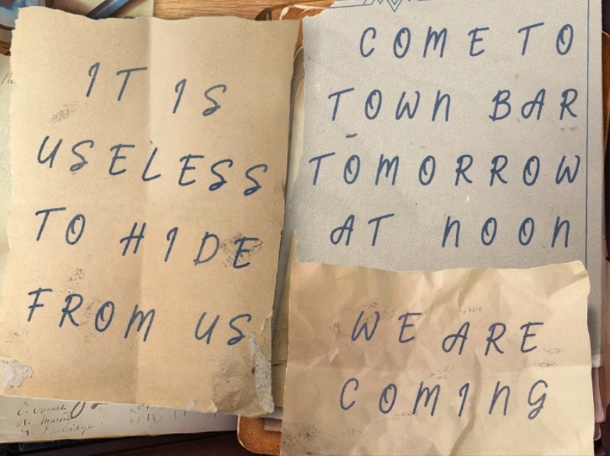 IT IS
USELESS
TO HIDE
FROM US
COME TO
TOWN BAR
TOMORROW
AT NOON
WE ARE
COMING